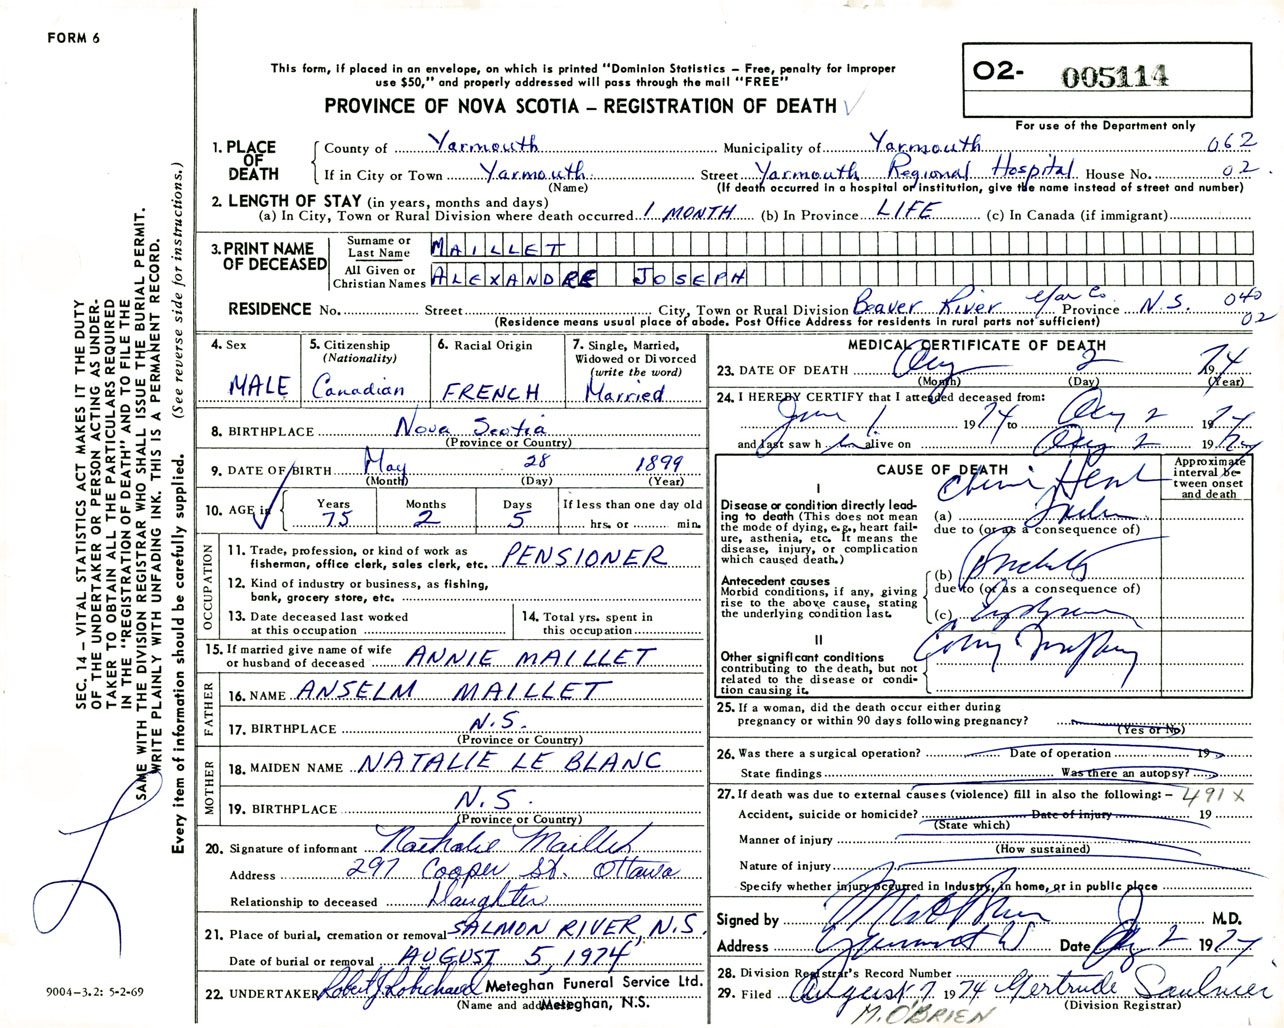 FORM 6
This form, if placed in an envelope, on which is printed "Dominion Statistics – Free, penalty for improper
use $50," and properly addressed will pass through the mail "FREE"
PROVINCE OF NOVA SCOTIA – REGISTRATION OF DEATH
02- 005114
For use of the Department only
1. PLACE OF DEATH
County of Yarmouth Municipality of Yarmouth 062
If in City or Town Yarmouth Street Yarmouth Regional Hospital House No. 02
(Name) (If death occurred in a hospital or institution, give the name instead of street and number)
2. LENGTH OF STAY (in years, months and days)
(a) In City, Town or Rural Division where death occurred 1 MONTH (b) In Province LIFE (c) In Canada (if immigrant)
3. PRINT NAME OF DECEASED
Surname or Last Name MAILLET
All Given or Christian Names ALEXANDRE JOSEPH
RESIDENCE No. Street City, Town or Rural Division Beaver River Yar Co Province N.S. 040
02
(Residence means usual place of abode. Post Office Address for residents in rural parts not sufficient)
4. Sex MALE
5. Citizenship (Nationality) Canadian
6. Racial Origin FRENCH
7. Single, Married, Widowed or Divorced (write the word) Married
8. BIRTHPLACE Nova Scotia
(Province or Country)
9. DATE OF BIRTH May 28 1899
(Month) (Day) (Year)
10. AGE in Years 75 Months 2 Days 5 If less than one day old hrs. or min.
OCCUPATION
11. Trade, profession, or kind of work as
fisherman, office clerk, sales clerk, etc. PENSIONER
12. Kind of industry or business, as fishing,
bank, grocery store, etc.
13. Date deceased last worked
at this occupation
14. Total yrs. spent in
this occupation
15. If married give name of wife
or husband of deceased ANNIE MAILLET
FATHER
16. NAME ANSELM MAILLET
17. BIRTHPLACE N.S.
(Province or Country)
MOTHER
18. MAIDEN NAME NATALIE LE BLANC
19. BIRTHPLACE N.S.
(Province or Country)
20. Signature of informant Nathalie Maillet
Address 297 Cooper St. Ottawa
Relationship to deceased Daughter
21. Place of burial, cremation or removal SALMON RIVER, N.S.
Date of burial or removal AUGUST 5, 1974
22. UNDERTAKER Robert J Robichaud Meteghan Funeral Service Ltd.
(Name and address) Meteghan, N.S.
MEDICAL CERTIFICATE OF DEATH
23. DATE OF DEATH Aug 2 1974
(Month) (Day) (Year)
24. I HEREBY CERTIFY that I attended deceased from:
June 1 1974 to Aug 2 1974
and last saw h im alive on Aug 2 1974
CAUSE OF DEATH
Approximate interval between onset and death
I
Disease or condition directly leading to death (This does not mean
the mode of dying, e.g., heart failure, asthenia, etc. It means the
disease, injury, or complication
which caused death.)
(a)
due to (or as a consequence of)
Antecedent causes
Morbid conditions, if any, giving
rise to the above cause, stating
the underlying condition last.
(b)
due to (or as a consequence of)
(c)
II
Other significant conditions
contributing to the death, but not
related to the disease or condition causing it.
25. If a woman, did the death occur either during
pregnancy or within 90 days following pregnancy?
(Yes or No)
26. Was there a surgical operation? Date of operation 19
State findings Was there an autopsy?
27. If death was due to external causes (violence) fill in also the following: – 491X
Accident, suicide or homicide? Date of injury 19
(State which)
Manner of injury
(How sustained)
Nature of injury
Specify whether injury occurred in Industry, in home, or in public place
Signed by M.D.
Address Date Aug 2 1974
28. Division Registrar's Record Number
29. Filed August 7 1974 Gertrude Saulnier
(Division Registrar)
M. O'BRIEN
SEC. 14 – VITAL STATISTICS ACT MAKES IT THE DUTY
OF THE UNDERTAKER OR PERSON ACTING AS UNDER-
TAKER TO OBTAIN ALL THE PARTICULARS REQUIRED
IN THE "REGISTRATION OF DEATH" AND TO FILE THE
SAME WITH THE DIVISION REGISTRAR WHO SHALL ISSUE THE BURIAL PERMIT.
WRITE PLAINLY WITH UNFADING INK. THIS IS A PERMANENT RECORD.
Every item of information should be carefully supplied. (See reverse side for instructions.)
9004-3.2: 5-2-69